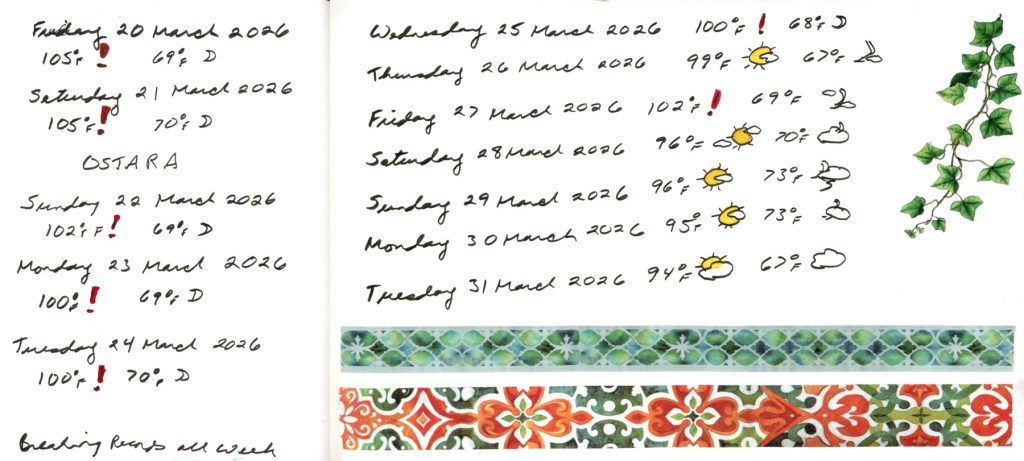 Friday 20 March 2026
105°F ! 69°F D
Saturday 21 March 2026
105°F ! 70°F D
OSTARA
Sunday 22 March 2026
102°F F ! 69°F D
Monday 23 March 2026
100°F ! 69°F D
Tuesday 24 March 2026
100°F ! 70°F D
Breaking Records all week
Wednesday 25 March 2026 100°F ! 68°F D
Thursday 26 March 2026 99°F 67°F
Friday 27 March 2026 102°F ! 69°F
Saturday 28 March 2026 96°F 70°F
Sunday 29 March 2026 96°F 73°F
Monday 30 March 2026 95°F 73°F
Tuesday 31 March 2026 94°F 67°F